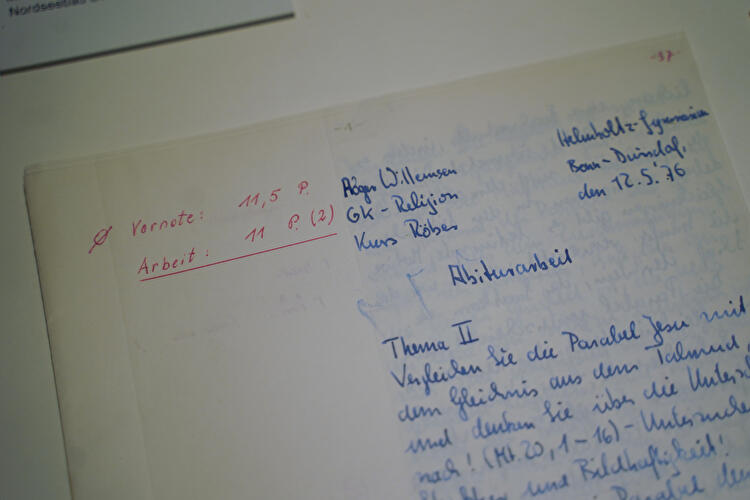 Nordseetias
-37-
-1-
Ø Vornote: 11,5 P.
Arbeit: 11 P. (2)
Roger Willemsen
GK - Religion
Kurs Röber
Helmholtz-Gymnasium
Bonn-Duisdorf,
den 12.5.'76
Abiturarbeit
Thema II
Vergleichen Sie die Parabel Jesu mit
dem Gleichnis aus dem Talmud
und denken Sie über die Untersch
nach! (Mt. 20, 1-16) - Untersuchen
und Bildhaftigkeit!
Parabel